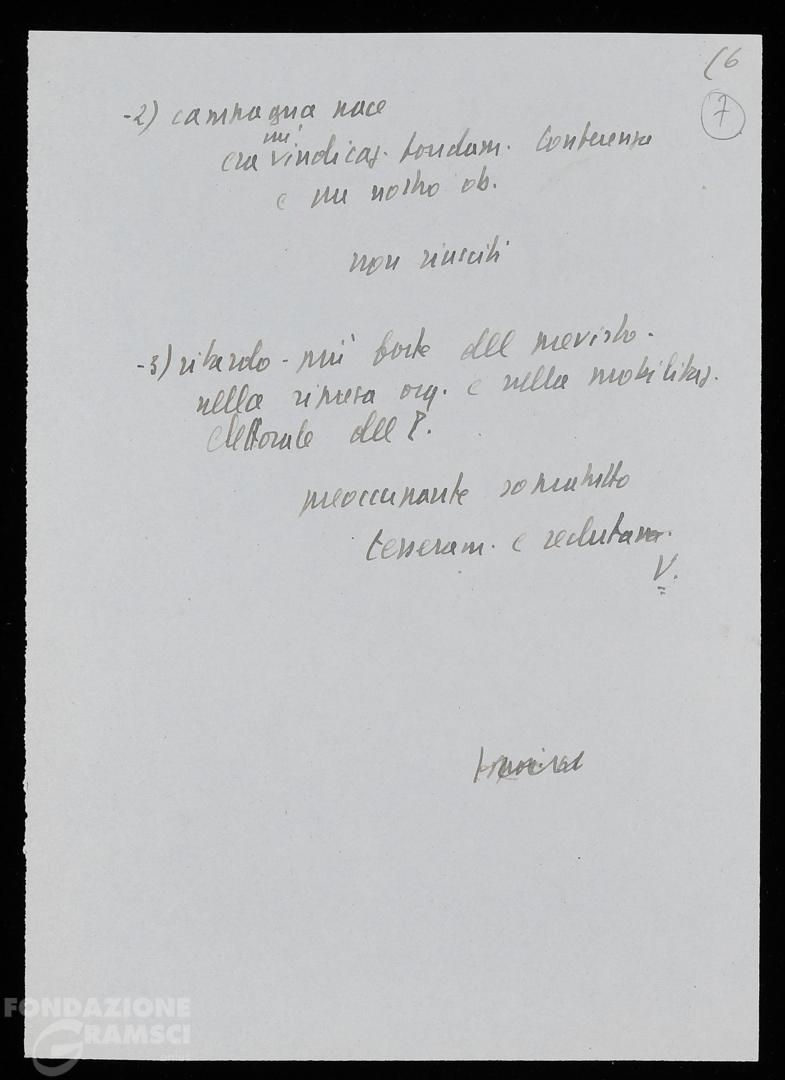 (6
7
-2) campagna pace
più
era rivendicaz. fondam. Conferenza
e più nostro ob.
non riusciti
-3) ritardo - più forte del previsto -
nella ripresa org. e nella mobilitaz.
elettorale del P.
preoccupante soprattutto
tesseram. e reclutam.
V.
FONDAZIONE
GRAMSCI
onlus